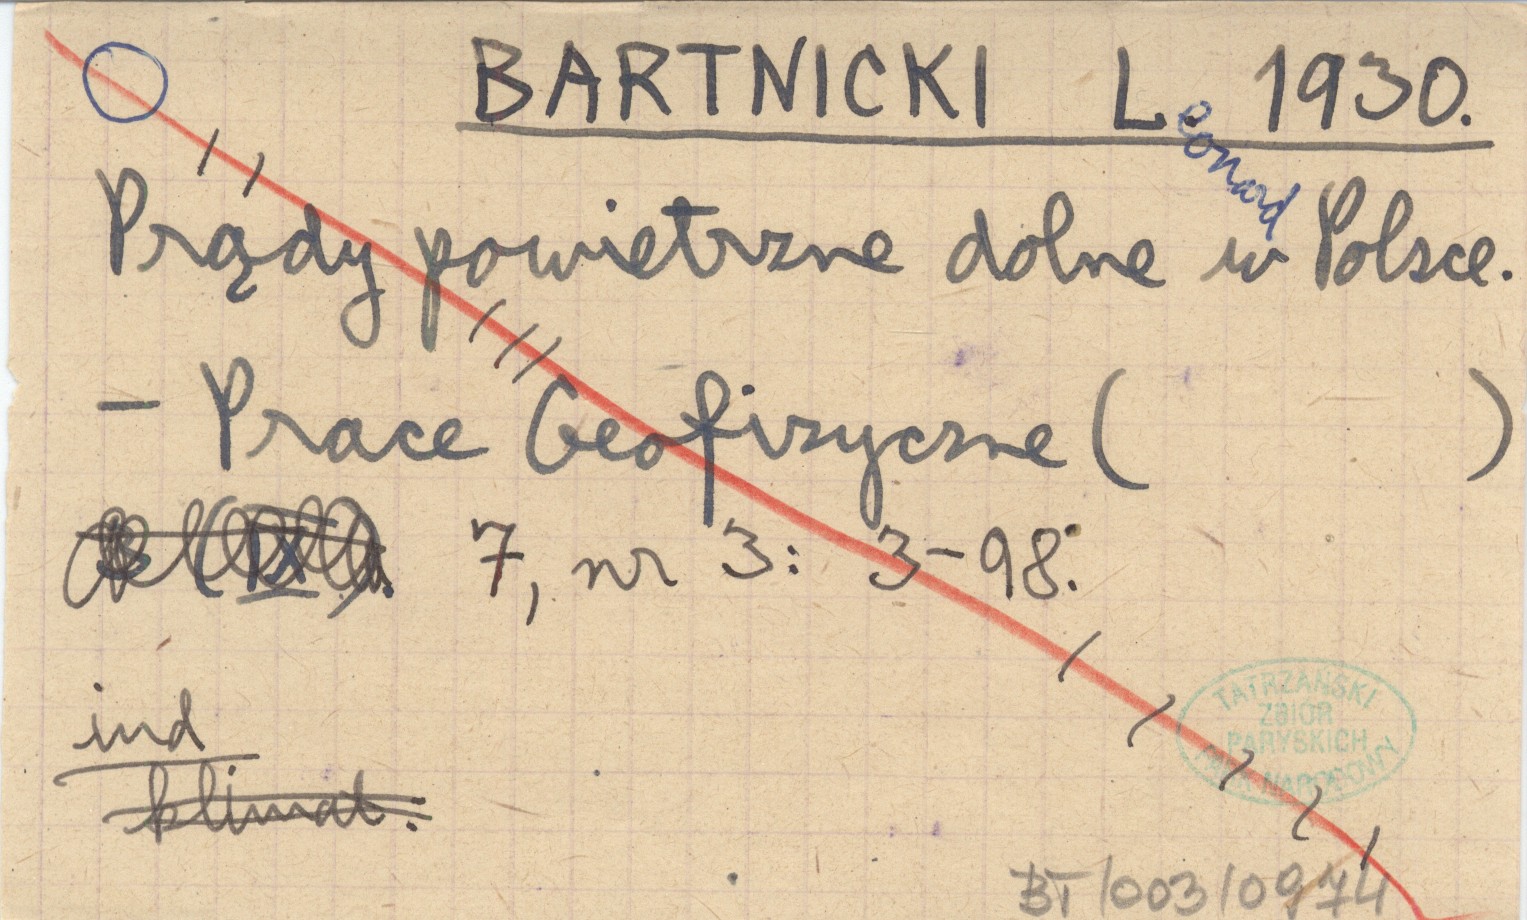 BARTNICKI L. 1930.
eonard
Prądy powietrzne dolne w Polsce.
- Prace Geofizyczne ( )
7, nr 3: 3-98.
ind
klimat.
TATRZAŃSKI
ZBIÓR
PARYSKICH
PARK NARODOWY
BT/003/0974